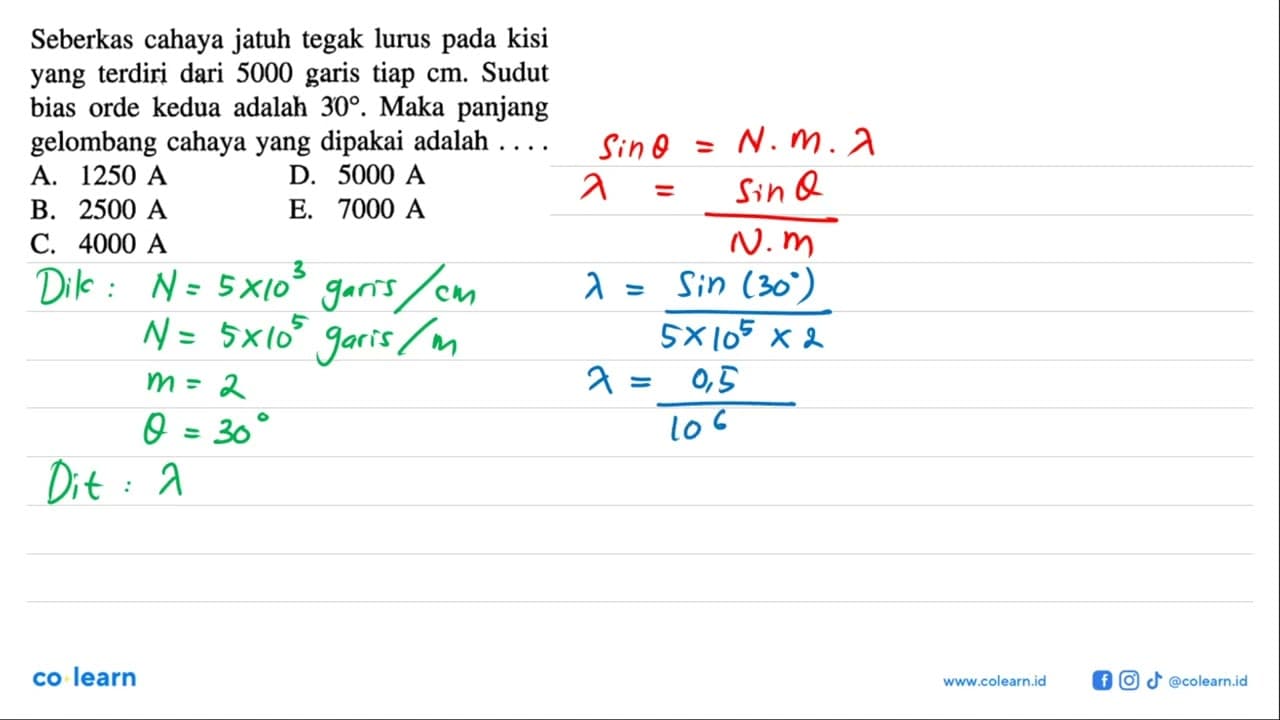 Seberkas cahaya jatuh tegak lurus pada kisi
yang terdiri dari 5000 garis tiap cm. Sudut
bias orde kedua adalah 30°. Maka panjang
gelombang cahaya yang dipakai adalah . . . .
A. 1250 A D. 5000 A
B. 2500 A E. 7000 A
C. 4000 A
Dik : N = 5×10³ garis/cm
N = 5×10⁵ garis/m
m = 2
θ = 30°
Dit : λ
Sin θ = N. m. λ
λ = Sin θ / N. m
λ = Sin (30°) / 5×10⁵ × 2
λ = 0,5 / 10⁶
co learn
www.colearn.id @colearn.id